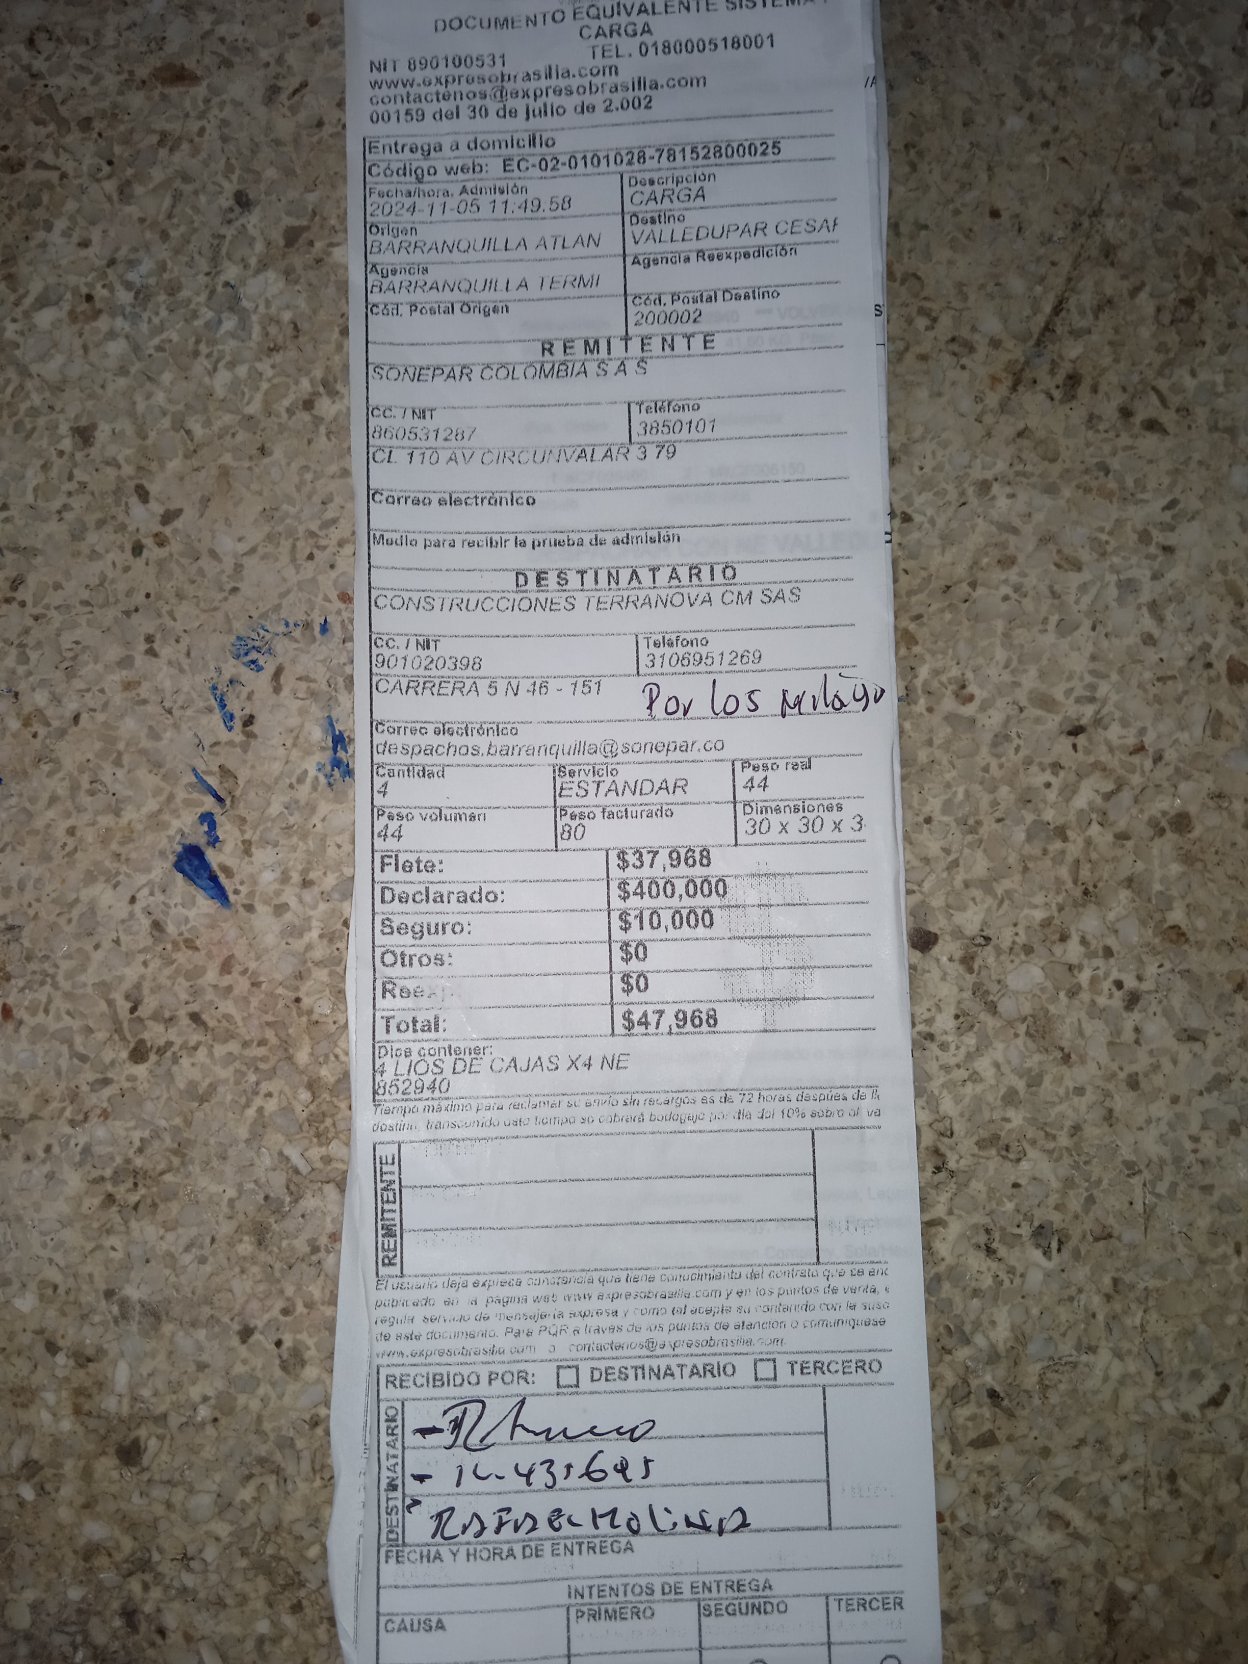 DOCUMENTO EQUIVALENTE SISTEMA
CARGA
NIT 890100531 TEL. 018000518001
www.expresobrasilia.com
contactenos@expresobrasilia.com
00159 del 30 de julio de 2.002
Entrega a domicilio
Código web: EC-02-0101028-78152800025
Fecha/hora. Admisión Descripción
2024-11-05 11:49.58 CARGA
Origen Destino
BARRANQUILLA ATLAN VALLEDUPAR CESAR
Agencia Agencia Reexpedición
BARRANQUILLA TERMI
Cód. Postal Origen Cód. Postal Destino
200002
REMITENTE
SONEPAR COLOMBIA S A S
CC. / NIT Teléfono
860531287 3850101
CL 110 AV CIRCUNVALAR 3 79
Correo electrónico
Medio para recibir la prueba de admisión
DESTINATARIO
CONSTRUCCIONES TERRANOVA CM SAS
CC. / NIT Teléfono
901020398 3106951269
CARRERA 5 N 46 - 151 Por los
Correo electrónico
despachos.barranquilla@sonepar.co
Cantidad Servicio Peso real
4 ESTANDAR 44
Peso volumen Peso facturado Dimensiones
44 80 30 x 30 x 3
Flete: $37,968
Declarado: $400,000
Seguro: $10,000
Otros: $0
Reexp $0
Total: $47,968
Dice contener:
4 LIOS DE CAJAS X4 NE
852940
Tiempo máximo para reclamar su envío sin recargos es de 72 horas después de
destino, transcurrido este tiempo se cobrará bodegaje por día del 10% sobre el va
REMITENTE
El usuario deja expresa constancia que tiene conocimiento del contrato que se enc
publicado en la página web www.expresobrasilia.com y en los puntos de venta,
regula servicio de mensajería expresa y como tal acepta su contenido con la susc
de este documento. Para PQR a través de los puntos de atención o comuníquese
www.expresobrasilia.com o contactenos@expresobrasilia.com.
RECIBIDO POR: DESTINATARIO TERCERO
DESTINATARIO
RAFAEL MOLINA
FECHA Y HORA DE ENTREGA
INTENTOS DE ENTREGA
CAUSA PRIMERO SEGUNDO TERCER